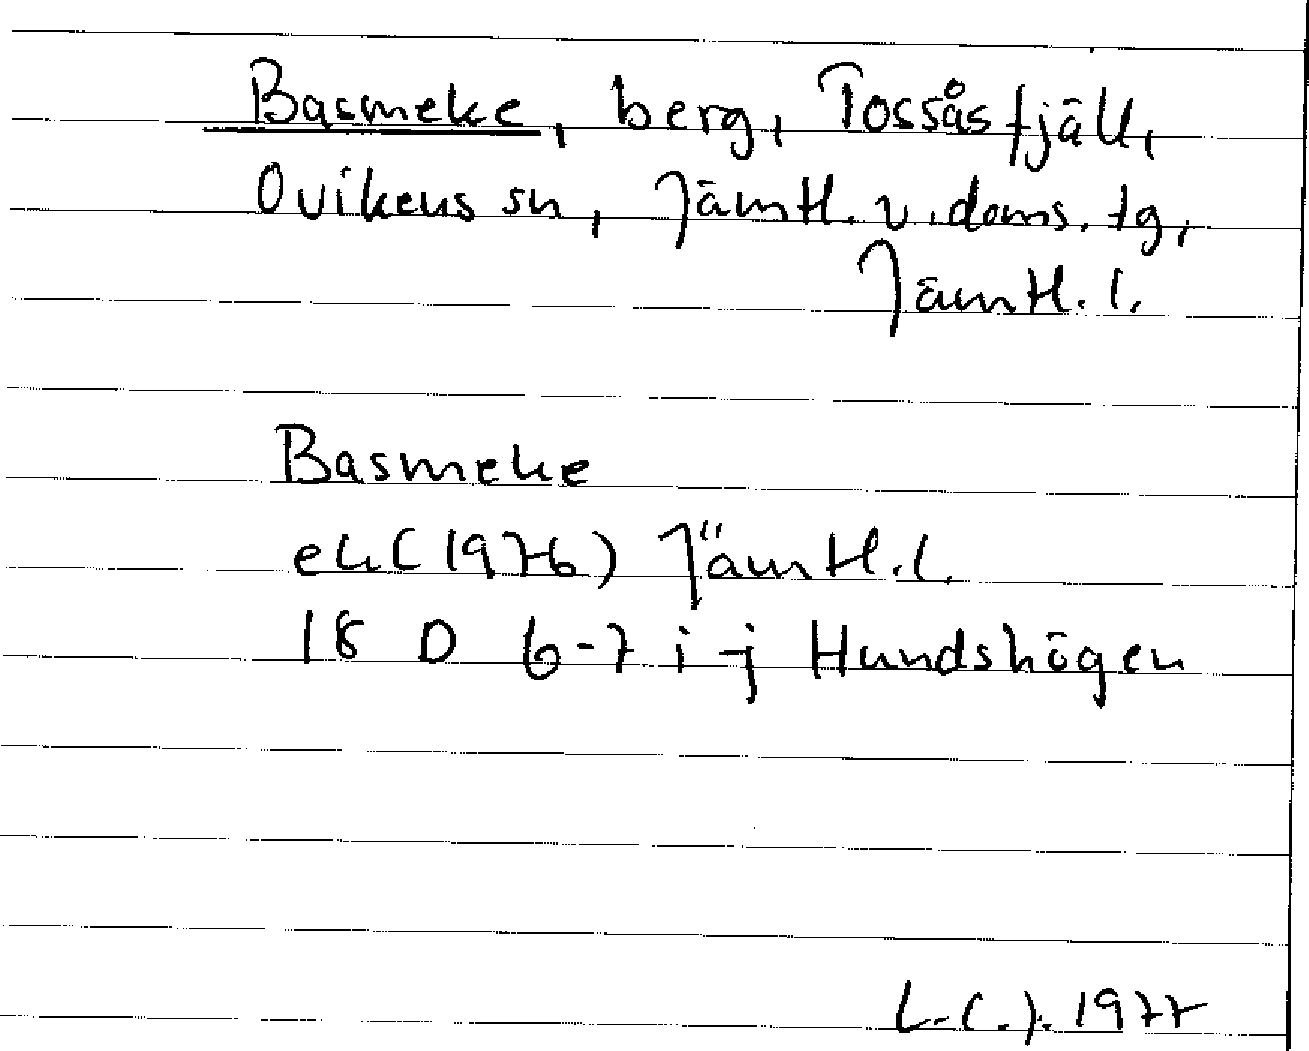 Basmeke, berg, Tossåsfjäll,
Ovikens sn, Jämtl. v. doms. tg,
Jämtl. l.
Basmeke
ek (1976) Jämtl. l.
18 D 6-7 i-j Hundshögen
1977